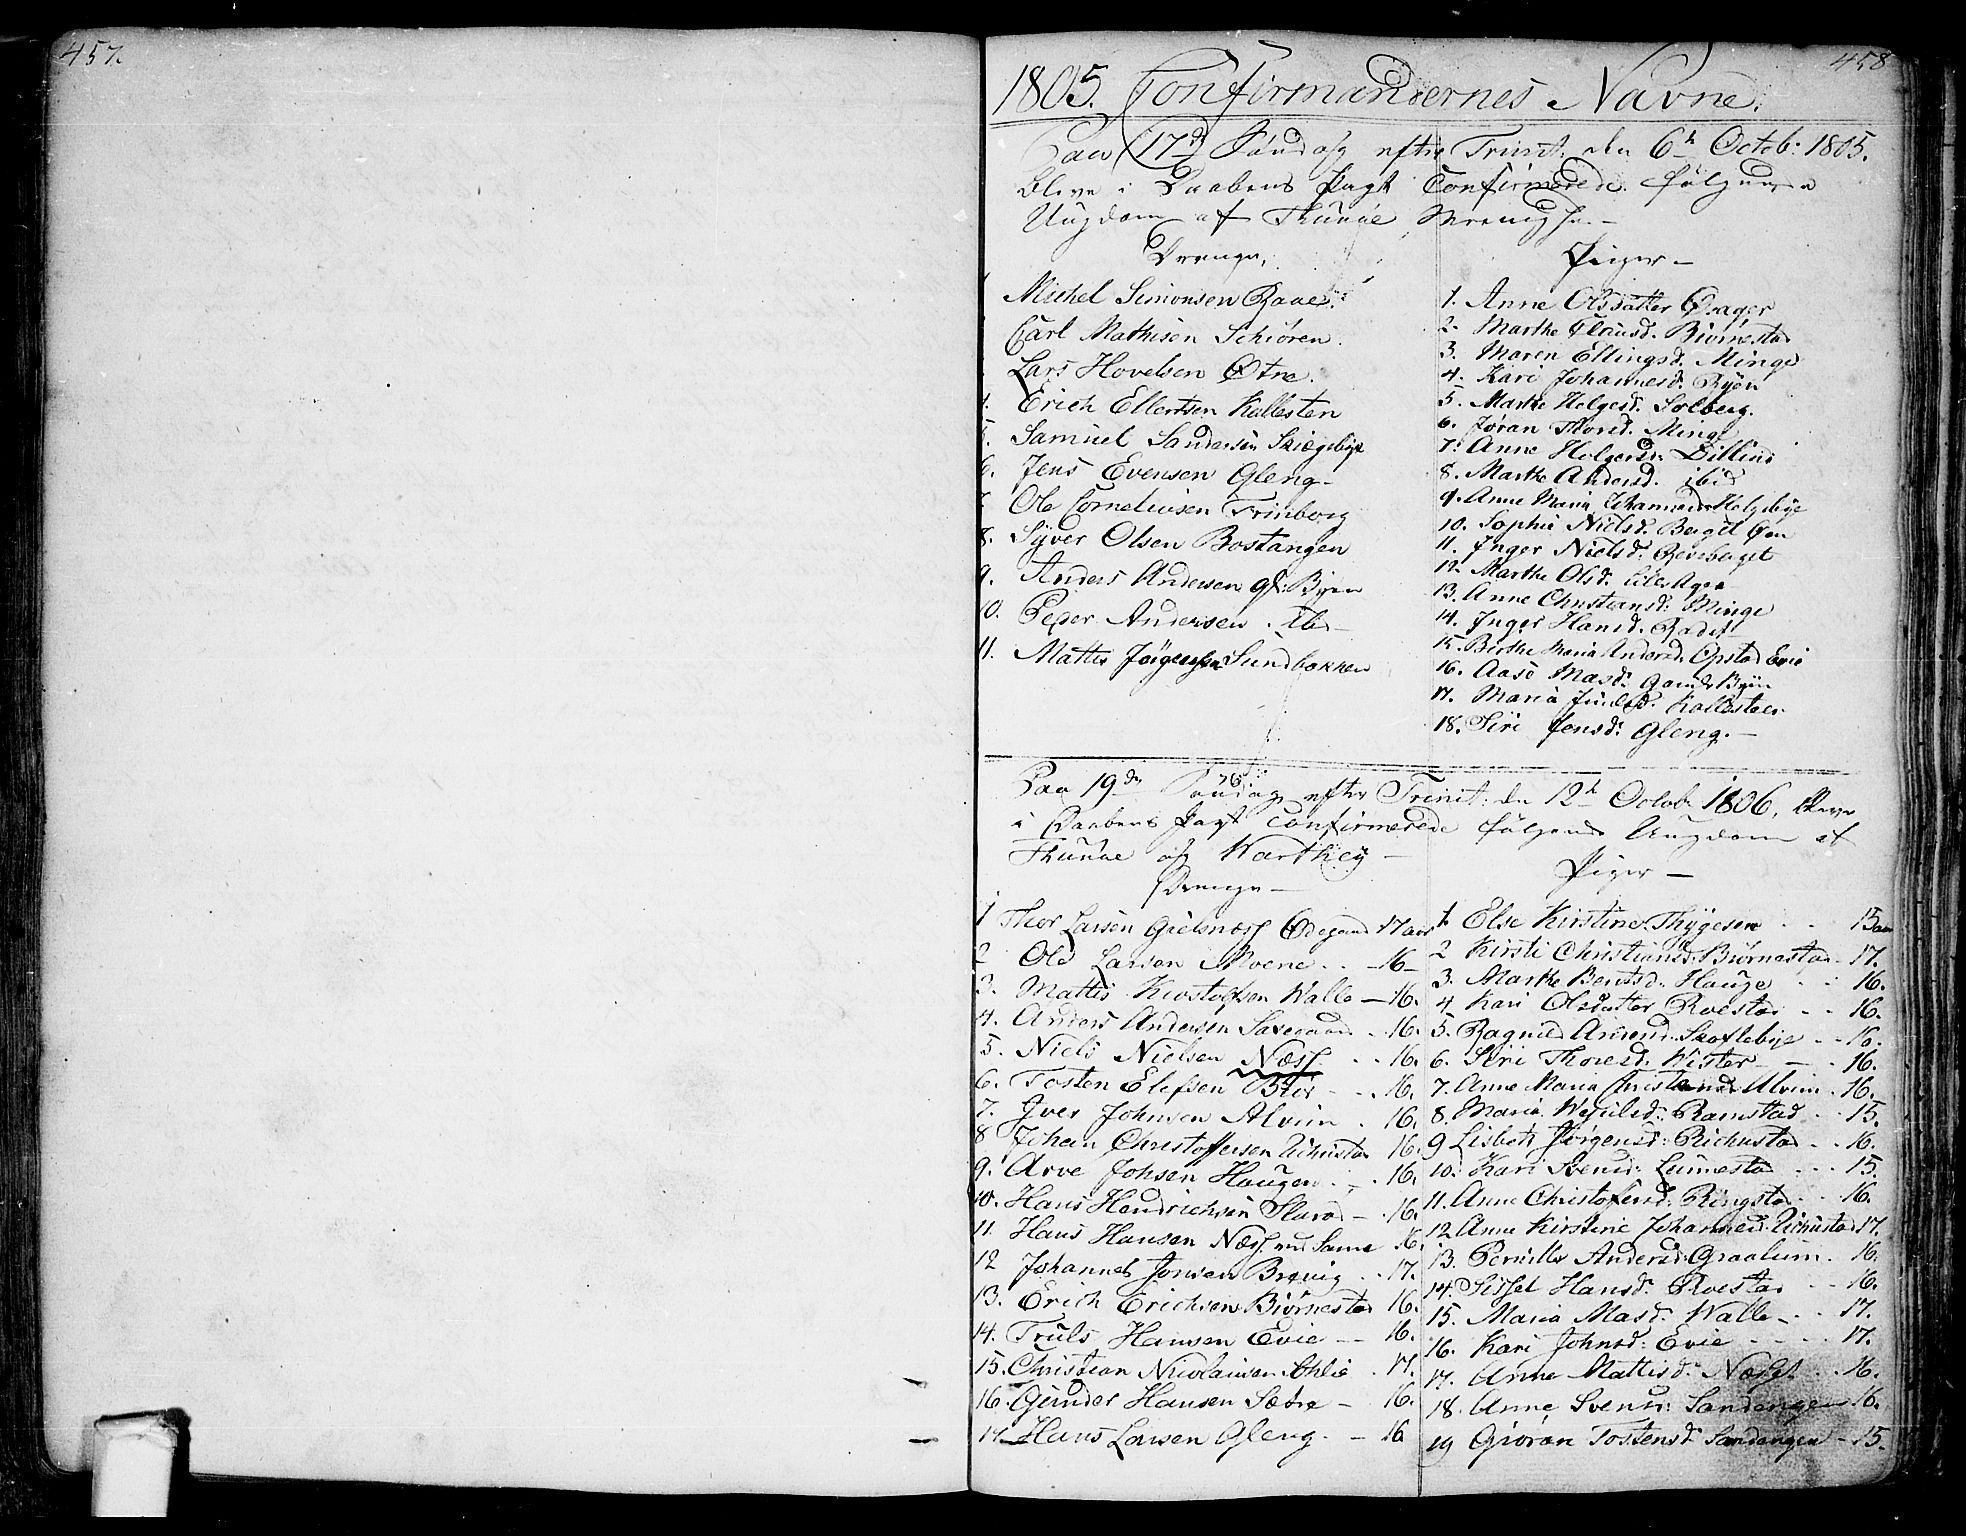 457.
458
1805. Confirmandernes Navne.
Paa 17de Søndag efter Trinit: den 6te Octob: 1805.
bleve i Daabens Pagt Confirmerede følgende
Ungdom af Thunøe Menigh. –
Drenge,
Michel Simonsen
Carl Mathisen Schiøren.
Lars Hovelsen Øtne.
4. Erich Ellertsen Kallesten
5. Samuel Sandersen
6. Jens Evensen Gleng –
7. Ole Corneliusen Trinborg
8. Syver Olsen Bostangen
9. Anders Andersen gl: Byen
10. Peder Andersen. ib –
11. Mattis Jörgensen Sundbakken
Piger –
1. Anne Olsdatter
2. Marthe Biørnestad
3. Maren Ellingsd. Minge
4. Kari Johannesd.
5. Marthe Helgesd. Solberg.
6. Jøran Thorsd. Minge
7. Anne Holgersd:
8. Marthe Andersd. ibid
9. Anne Maria Johannesd.
10. Sophia Nielsd.
11. Inger Nielsd:
12. Marthe Olsd.
13. Anne Christiansd: Minge
14. Inger Hansd.
15. Birthe Maria Andersd. Opstad Evie
16. Aase Masd:
17. Maria Kallesteen
18. Siri Jensd: Gleng. –
Paa 19de Søndag efter Trinit: den 12te Octob: 1806, bleve
i Daabens Pagt Confirmerede følgende Ungdom af
Thunøe og Warthey –
Drenge –
1 Thor Larsen Ødegaard 17 aar
2 Ole Larsen – 16 –
3. Mattis Walle – 16.
4. Anders Andersen – 16.
5. Niels Nielsen Næss – 16.
6. Tosten Elefsen – 16.
7. Iver Johnsen Alvim . 16.
8 Johan Christoffersen 16.
9. Arve Johsen Haugen . . 16.
10. Hans Hendrichsen – 16.
11. Hans Hansen Næss ved Sanne 16.
12 Johannes Jonsen Brevig . . 17.
13. Erich Erichsen Biørnestad 16.
14. Truls Hansen Evie – – 16.
15. Christian Nicolaisen . 17.
16. Gunder Hansen Sætre – 16.
17 Hans Larsen Gleng. – 16
Piger –
1 Else Kirstine Thygesen . . 15 aar
2 Kirsti Christiansd. Biørnestad – 17.
3. Marthe Bentsd. Hauge . . 16.
4 Kari Olsdatter Roestad . . 16.
5. Ragnild . . 16.
6. Siri Thoresd: Wister – 16.
7. Anne Maria Alvim . 16.
8. Maria Ramstad . . 15.
9 Lisbeth Jørgensd: . . 16.
10. Kari Svensd. . . . 15.
11. Anne Christofersd. Ringstad . . 16.
12 Anne Kirstine Johannesd. 17.
13. Pernille Andersd. Graalum . 16.
14. Sissel Hansd: Roestad . . 16.
15. Maria Masd: Walle – . . 17.
16. Kari Johnsd: Evie . . . . 17.
17. Anne Mattisd: . . 16.
18. Anne Svensd. Sandengen 16.
19 Giøran Tostensd. Sandengen – 15.